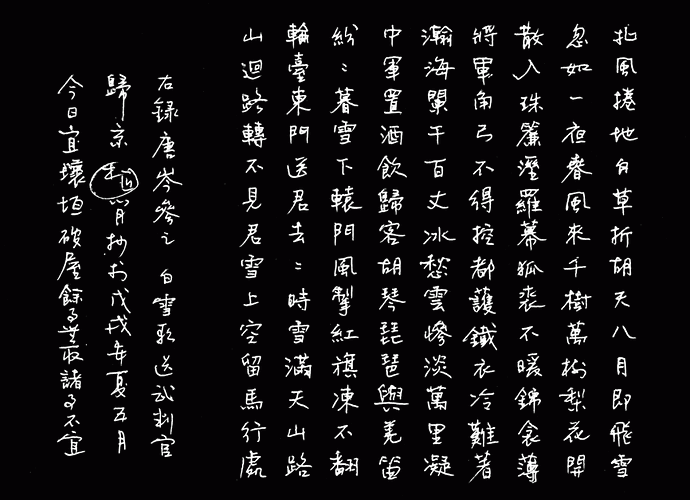 北風捲地白草折胡天八月即飛雪
忽如一夜春風來千樹萬樹梨花開
散入珠簾溼羅幕狐裘不暖錦衾薄
將軍角弓不得控都護鐵衣冷難著
瀚海闌干百丈冰愁雲慘淡萬里凝
中軍置酒飲歸客胡琴琵琶與羌笛
紛〻暮雪下轅門風掣紅旗凍不翻
輪臺東門送君去〻時雪滿天山路
山迴路轉不見君雪上空留馬行處
右錄唐岑參之白雪歌送武判官
歸京 月抄於戊戌年夏五月
今日宜壞垣破屋餘事莫取諸事不宜